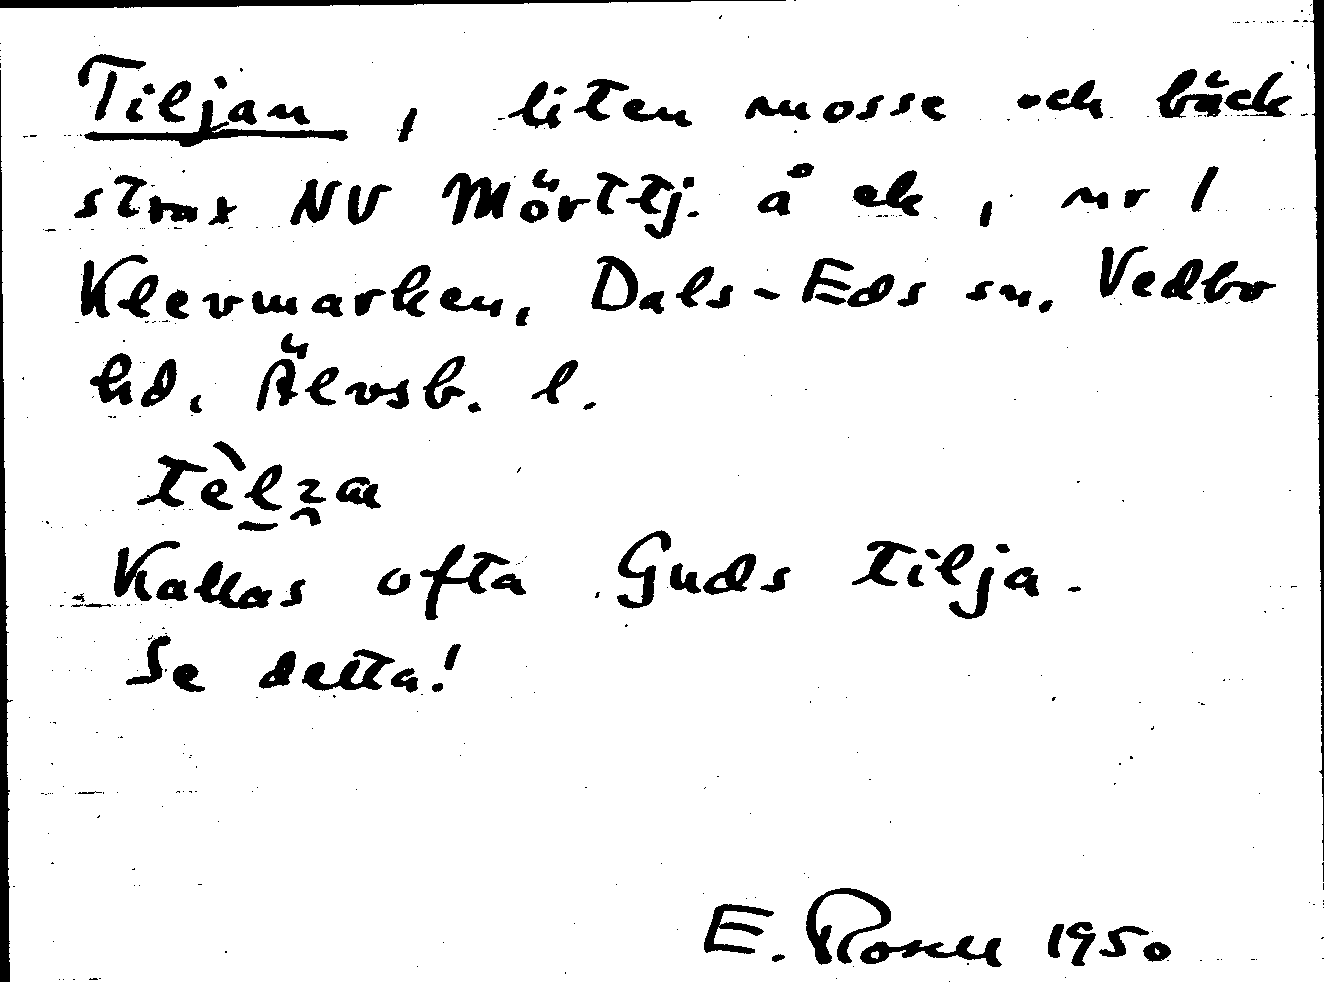 Tiljan, liten mosse och bäck
strax NV Mörttj. å ek, nr 1
Klevmarken, Dals-Eds sn. Vedbo
hd, Älvsb. l.
Kallas ofta Guds tilja.
Se detta!
E. Rosell 1950